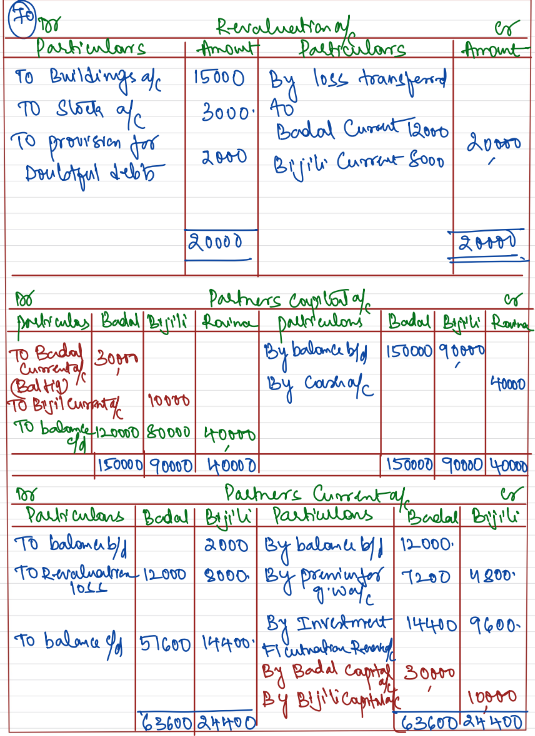 70
Dr Revaluation a/c Cr
Particulars Amount Particulars Amount
To Buildings a/c 15000 By loss transferred
To Stock a/c 3000. to
To provision for Badal Current 12000 20000
Doubtful debts 2000 Bijili Current 8000
20000 20000
Dr Partners Capital a/c Cr
particulars Badal Bijili Raina particulars Badal Bijili Raina
To Badal 30000 By balance b/d 150000 90000
Current a/c By Cash a/c 40000
(Bal fig)
To Bijili Current a/c 10000
To balance c/d 120000 80000 40000
150000 90000 40000 150000 90000 40000
Dr Partners Current a/c Cr
Particulars Badal Bijili Particulars Badal Bijili
To balance b/d 2000 By balance b/d 12000.
To Revaluation 12000 8000. By premium for 7200 4800.
loss g.w a/c
By Investment 14400 9600.
To balance c/d 51600 14400. Fluctuation Reserve
By Badal Capital a/c 30000
By Bijili Capital a/c 10000
63600 24400 63600 24400